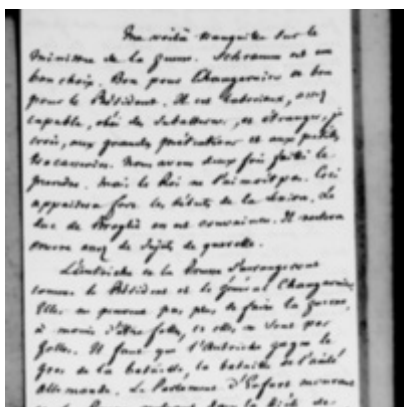 Me voilà tranquille sur le
ministre de la guerre. Schramm est un
bon choix. Bon pour Changarnier et bon
pour le Président. Il est laborieux, assez
capable, aimé des subalternes, et étranger, je
crois, aux grandes prétentions et aux petites
tracasseries. Nous avons deux fois failli le
prendre. Mais le Roi ne l'aimait pas. Ceci
appaisera fort les débuts de la session. Le
duc de Broglie en est convaincu. Il restera
encore assez de sujets de querelle.
L'Autriche et la Prusse s'arrangeront
comme le Président et le général Changarnier.
Elles ne peuvent pas plus se faire la guerre,
à moins d'être folles, et elles ne sont pas
folles. Il faut que l'Autriche gagne le
gros de la bataille, la bataille de l'unité
allemande. Le Parlement d'Erfurt